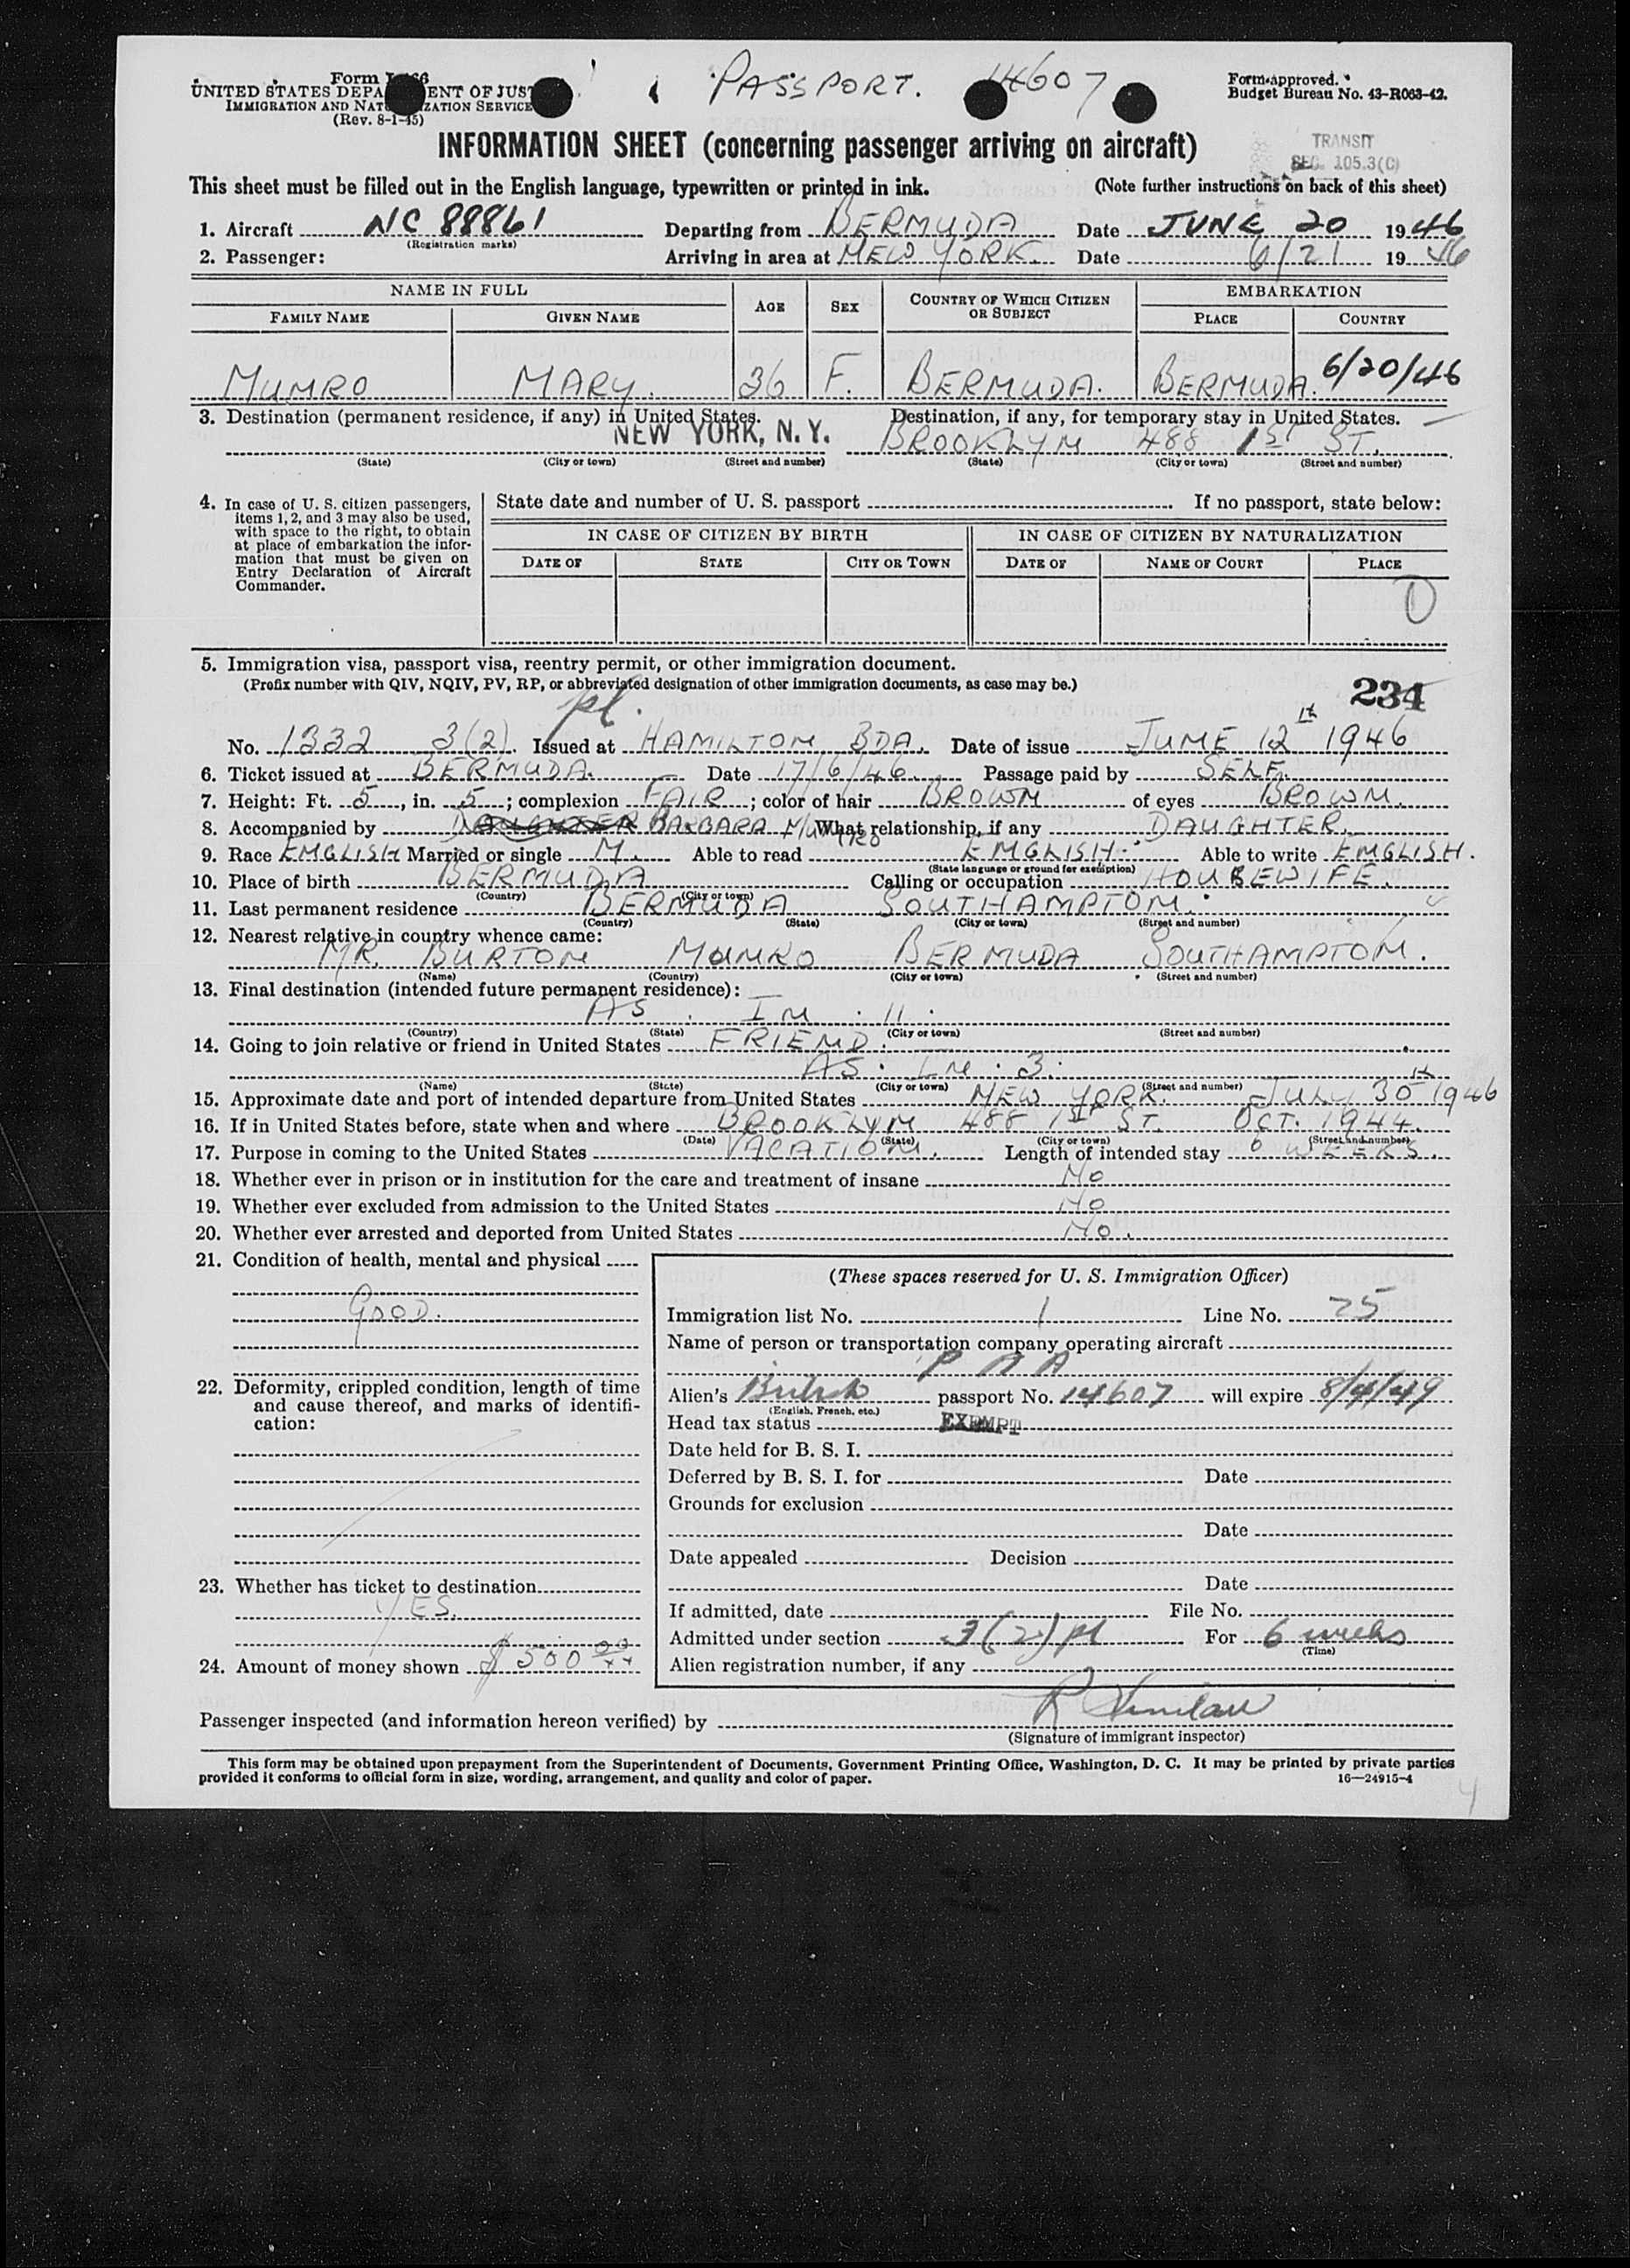 PASSPORT. 14607
Form I-466
UNITED STATES DEPARTMENT OF JUSTICE
IMMIGRATION AND NATURALIZATION SERVICE
(Rev. 8-1-45)
Form approved.
Budget Bureau No. 43-R063-42.
INFORMATION SHEET (concerning passenger arriving on aircraft)
TRANSIT
SEC. 105.3(C)
This sheet must be filled out in the English language, typewritten or printed in ink. (Note further instructions on back of this sheet)
1. Aircraft NC 88861 Departing from BERMUDA Date JUNE 20 1946
(Registration marks)
2. Passenger: Arriving in area at NEW YORK. Date 6/21 1946
NAME IN FULL AGE SEX COUNTRY OF WHICH CITIZEN OR SUBJECT EMBARKATION
FAMILY NAME GIVEN NAME PLACE COUNTRY
MUNRO MARY. 36 F. BERMUDA. BERMUDA. 6/20/46
3. Destination (permanent residence, if any) in United States. Destination, if any, for temporary stay in United States.
NEW YORK, N. Y. BROOKLYN 488 1ST ST.
(State) (City or town) (Street and number) (State) (City or town) (Street and number)
4. In case of U. S. citizen passengers, items 1, 2, and 3 may also be used, with space to the right, to obtain at place of embarkation the information that must be given on Entry Declaration of Aircraft Commander.
State date and number of U. S. passport If no passport, state below:
IN CASE OF CITIZEN BY BIRTH IN CASE OF CITIZEN BY NATURALIZATION
DATE OF STATE CITY OR TOWN DATE OF NAME OF COURT PLACE
5. Immigration visa, passport visa, reentry permit, or other immigration document.
(Prefix number with QIV, NQIV, PV, RP, or abbreviated designation of other immigration documents, as case may be.)
234
pl.
No. 1332 3(2). Issued at HAMILTON BDA. Date of issue JUNE 12th 1946
6. Ticket issued at BERMUDA. Date 17/6/46. Passage paid by SELF.
7. Height: Ft. 5, in. 5; complexion FAIR; color of hair BROWN of eyes BROWN.
8. Accompanied by BARBARA MUNRO What relationship, if any DAUGHTER.
9. Race ENGLISH Married or single M. Able to read ENGLISH. Able to write ENGLISH.
(State language or ground for exemption)
10. Place of birth BERMUDA Calling or occupation HOUSEWIFE.
(Country) (City or town)
11. Last permanent residence BERMUDA SOUTHAMPTON.
(Country) (State) (City or town) (Street and number)
12. Nearest relative in country whence came:
MR. BURTON MUNRO BERMUDA SOUTHAMPTON.
(Name) (Country) (City or town) (Street and number)
13. Final destination (intended future permanent residence):
AS. IN. 11.
(Country) (State) (City or town) (Street and number)
14. Going to join relative or friend in United States FRIEND.
AS. IN. 3.
(Name) (State) (City or town) (Street and number)
15. Approximate date and port of intended departure from United States NEW YORK. JULY 30th 1946
16. If in United States before, state when and where BROOKLYN 488 1ST ST. OCT. 1944.
(Date) (State) (City or town) (Street and number)
17. Purpose in coming to the United States VACATION. Length of intended stay 6 WEEKS.
18. Whether ever in prison or in institution for the care and treatment of insane NO
19. Whether ever excluded from admission to the United States NO
20. Whether ever arrested and deported from United States NO.
21. Condition of health, mental and physical
GOOD.
22. Deformity, crippled condition, length of time and cause thereof, and marks of identification:
23. Whether has ticket to destination
YES.
24. Amount of money shown $500 00/xx
(These spaces reserved for U. S. Immigration Officer)
Immigration list No. 1 Line No. 25
Name of person or transportation company operating aircraft
P A A
Alien's British passport No. 14607 will expire 8/4/49
(English, French, etc.)
Head tax status EXEMPT
Date held for B. S. I.
Deferred by B. S. I. for Date
Grounds for exclusion
Date
Date appealed Decision
Date
If admitted, date File No.
Admitted under section 3(2) pl For 6 weeks
(Time)
Alien registration number, if any
Passenger inspected (and information hereon verified) by
(Signature of immigrant inspector)
This form may be obtained upon prepayment from the Superintendent of Documents, Government Printing Office, Washington, D. C. It may be printed by private parties
provided it conforms to official form in size, wording, arrangement, and quality and color of paper. 16—24915-4
4